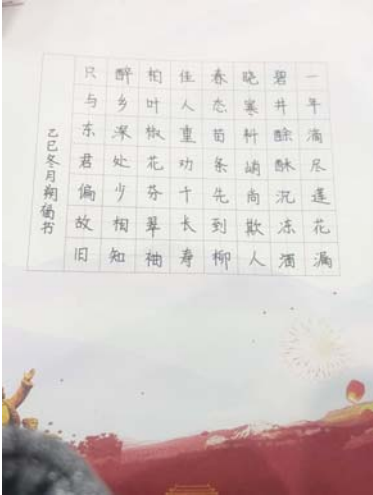 一年滴尽莲花漏
碧井酴酥沉冻酒
晓寒料峭尚欺人
春态苗条先到柳
佳人重劝千长寿
柏叶椒花芬翠袖
醉乡深处少相知
只与东君偏故旧
乙巳冬月书